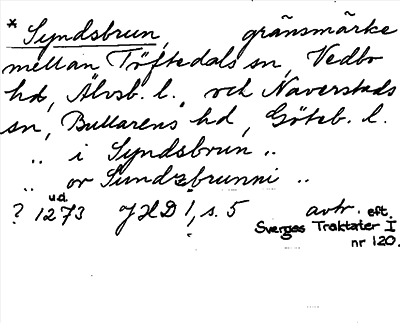 * Syndsbrun, gränsmärke
mellan Töftedals sn, Vedbo
hd, Älvsb. l. och Naverstads
sn, Bullarens hd, Göteb. l.
„ i Syndsbrun „
„ or Sundzbrunni „
ud.
? 1273 JHD 1, s. 5 avtr. eft.
Sverges Traktater I
nr 120.